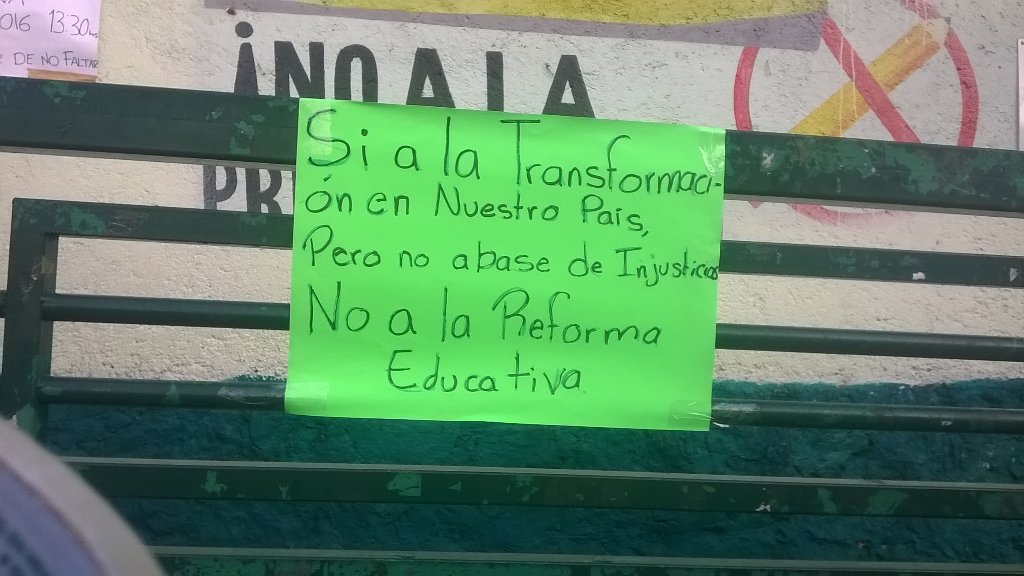 016 13:30hs
DE NO FALTAR
¡NO A LA
PR
Si a la Transformaci-
ón en Nuestro País,
Pero no abase de Injusticias
No a la Reforma
Educativa